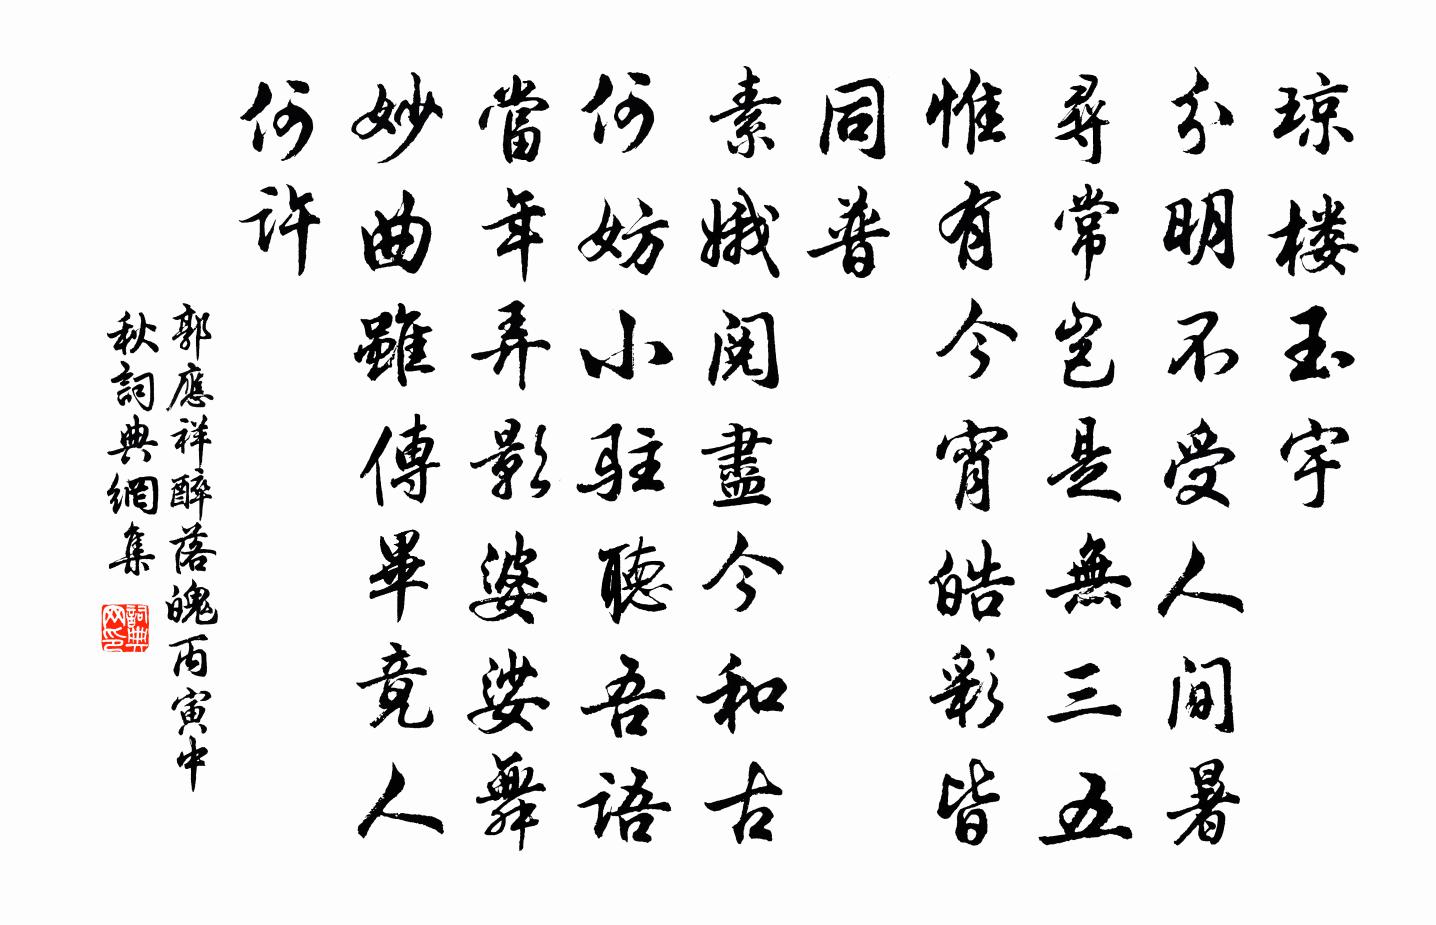 琼楼玉宇
分明不受人间暑
尋常岂是無三五
惟有今宵皓彩皆
同普
素娥阅盡今和古
何妨小驻聽吾語
當年弄影婆娑舞
妙曲雖傳畢竟人
何许
郭應祥醉落魄丙寅中
秋詞典網集
詞典
网印